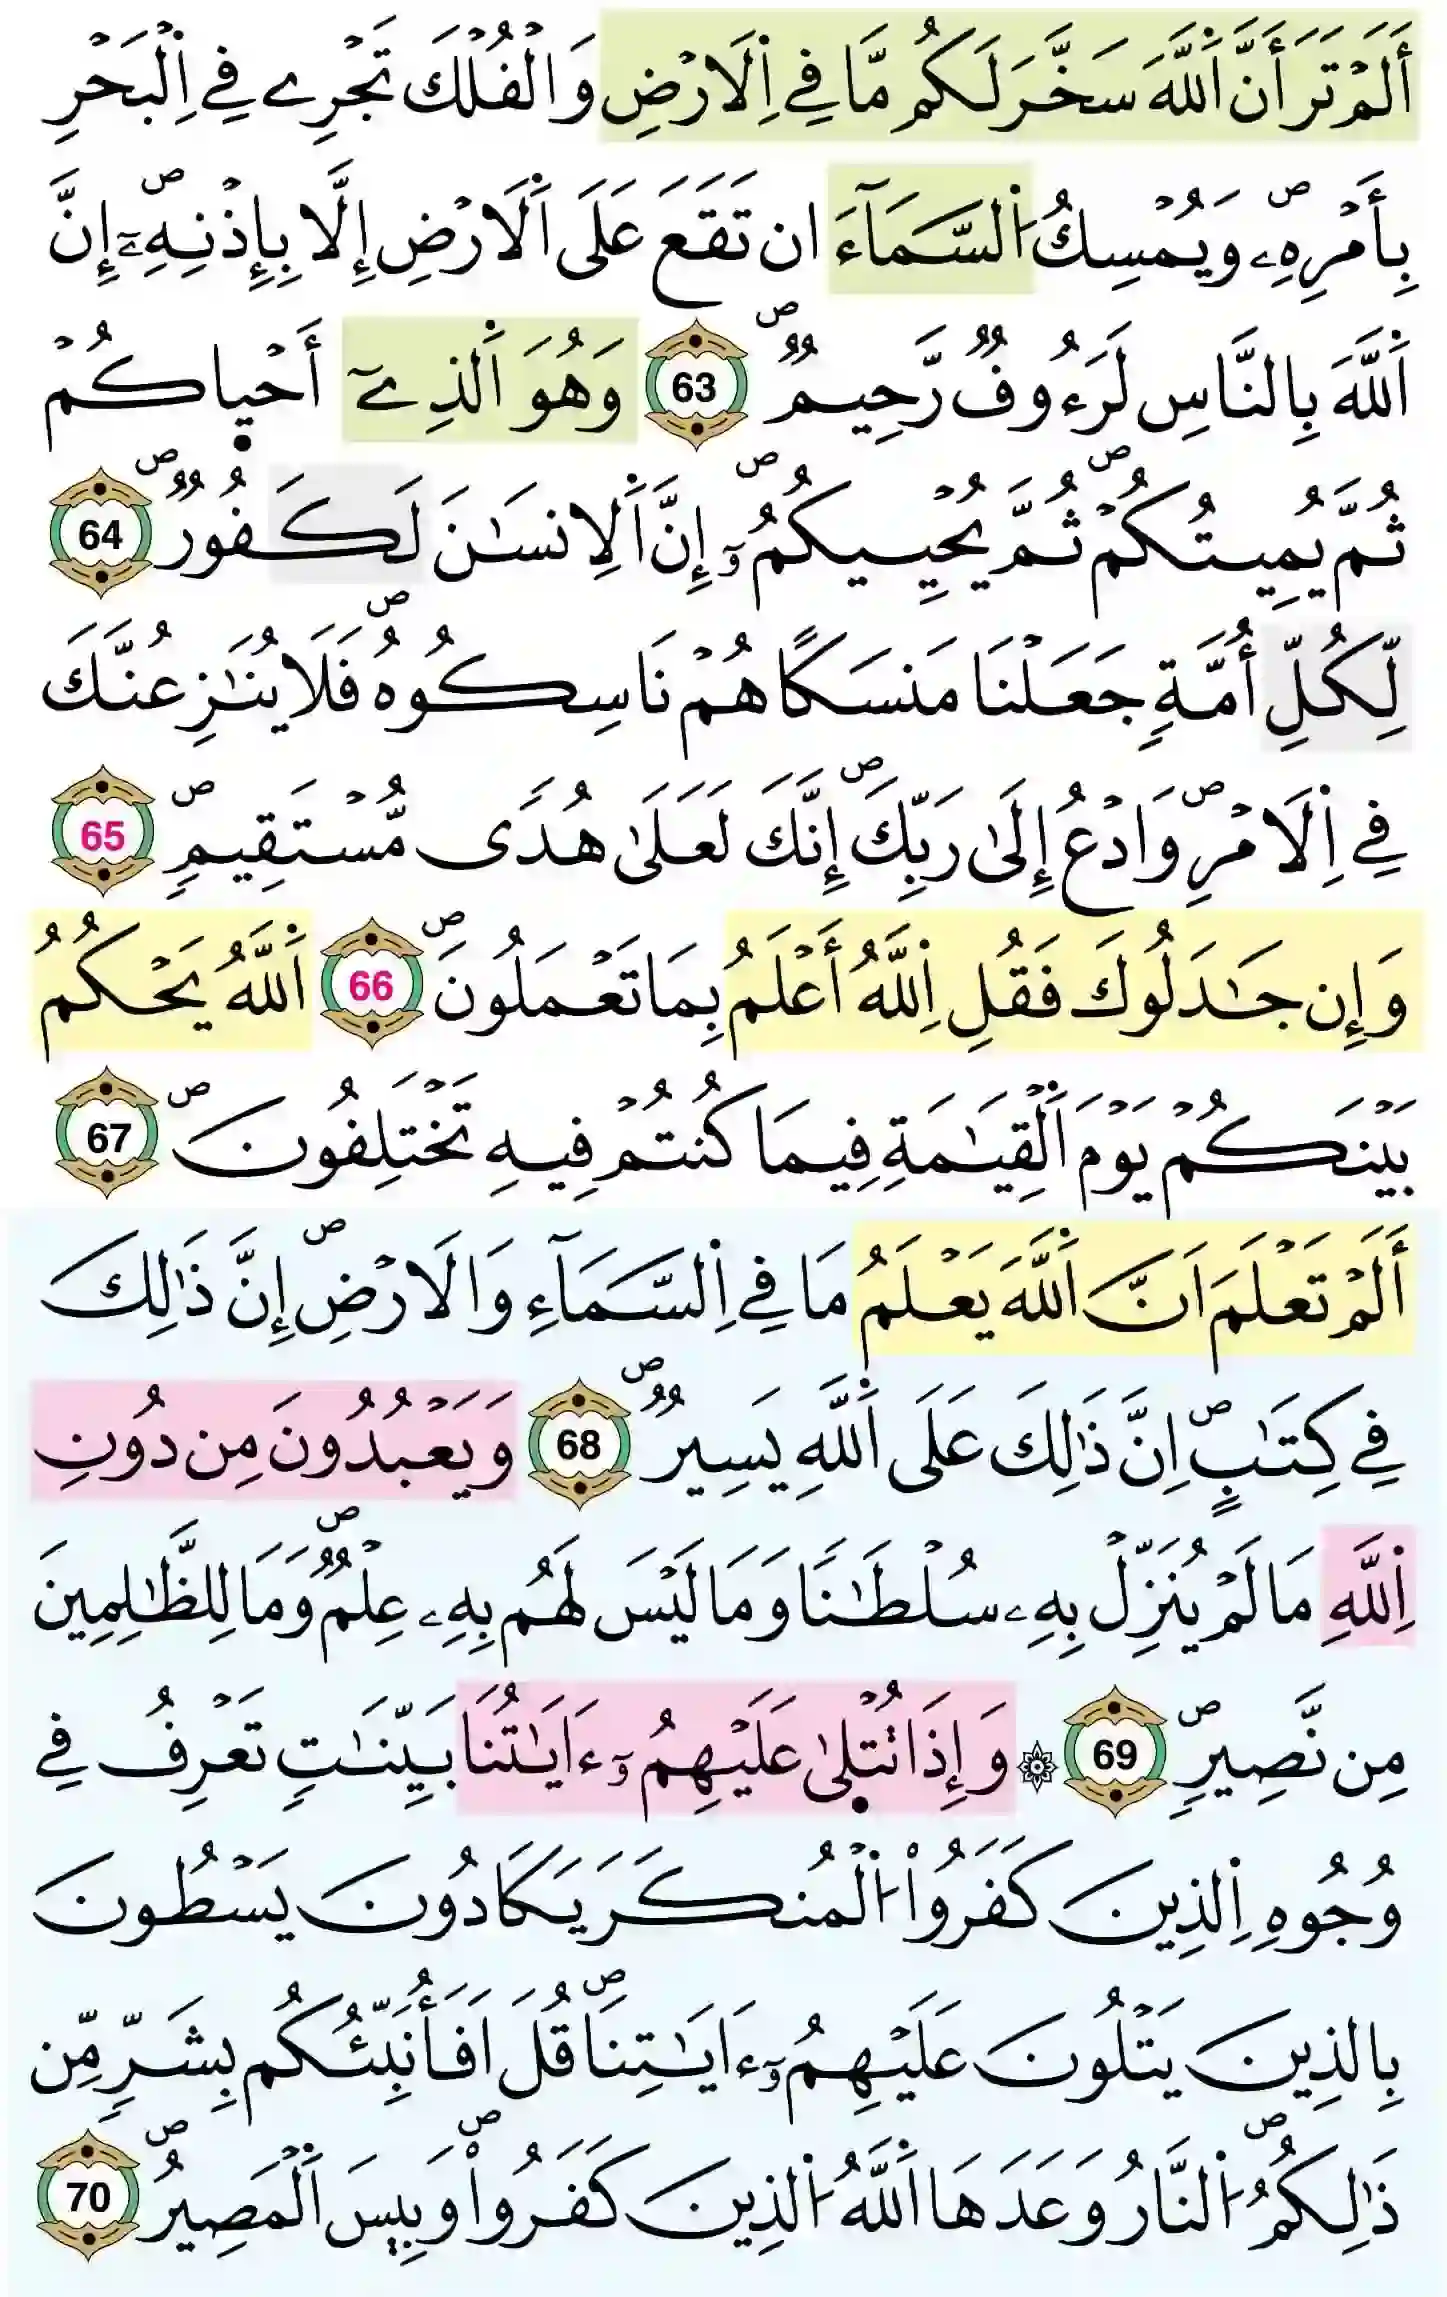 أَلَمْ تَرَ أَنَّ اَ۬للَّهَ سَخَّرَ لَكُم مَّا فِے اِ۬لَارْضِ وَالْفُلْكَ تَجْرِے فِے اِ۬لْبَحْرِ
بِأَمْرِهِۦۖ وَيُمْسِكُ اُ۬لسَّمَآءَ ان تَقَعَ عَلَى اَ۬لَارْضِ إِلَّا بِإِذْنِهِۦٓۖ إِنَّ
اَ۬للَّهَ بِالنَّاسِ لَرَءُوفٞ رَّحِيمٞۖ 63 وَهُوَ اَ۬لذِےٓ أَحْي۪اكُمْ
ثُمَّ يُمِيتُكُمْۖ ثُمَّ يُحْيِيكُمُۥٓۖ إِنَّ اَ۬لِانسَٰنَ لَكَفُورٞۖ 64
لِّكُلِّ أُمَّةٖ جَعَلْنَا مَنسَكًا هُمْ نَاسِكُوهُۖ فَلَا يُنَٰزِعُنَّكَ
فِے اِ۬لَامْرِۖ وَادْعُ إِلَىٰ رَبِّكَۖ إِنَّكَ لَعَلَىٰ هُدٗى مُّسْتَقِيمٖۖ 65
وَإِن جَٰدَلُوكَ فَقُلِ اِ۬للَّهُ أَعْلَمُ بِمَا تَعْمَلُونَۖ 66 اَ۬للَّهُ يَحْكُمُ
بَيْنَكُمْ يَوْمَ اَ۬لْقِيَٰمَةِ فِيمَا كُنتُمْ فِيهِ تَخْتَلِفُونَۖ 67
أَلَمْ تَعْلَمَ اَنَّ اَ۬للَّهَ يَعْلَمُ مَا فِے اِ۬لسَّمَآءِ وَالَارْضِۖ إِنَّ ذَٰلِكَ
فِے كِتَٰبٍۖ اِنَّ ذَٰلِكَ عَلَى اَ۬للَّهِ يَسِيرٞۖ 68 وَيَعْبُدُونَ مِن دُونِ
اِ۬للَّهِ مَا لَمْ يُنَزِّلْ بِهِۦ سُلْطَٰنٗا وَمَا لَيْسَ لَهُم بِهِۦ عِلْمٞۖ وَمَا لِلظَّٰلِمِينَ
مِن نَّصِيرٖۖ 69 ۞ وَإِذَا تُتْل۪ىٰ عَلَيْهِمُۥٓ ءَايَٰتُنَا بَيِّنَٰتٖ تَعْرِفُ فِے
وُجُوهِ اِ۬لذِينَ كَفَرُواْ اُ۬لْمُنكَرَ يَكَادُونَ يَسْطُونَ
بِالذِينَ يَتْلُونَ عَلَيْهِمُۥٓ ءَايَٰتِنَاۖ قُلَ اَفَأُنَبِّئُكُم بِشَرّٖ مِّن
ذَٰلِكُمُۖ اُ۬لنَّارُ وَعَدَهَا اَ۬للَّهُ اُ۬لذِينَ كَفَرُواْۖ وَبِيسَ اَ۬لْمَصِيرُۖ 70